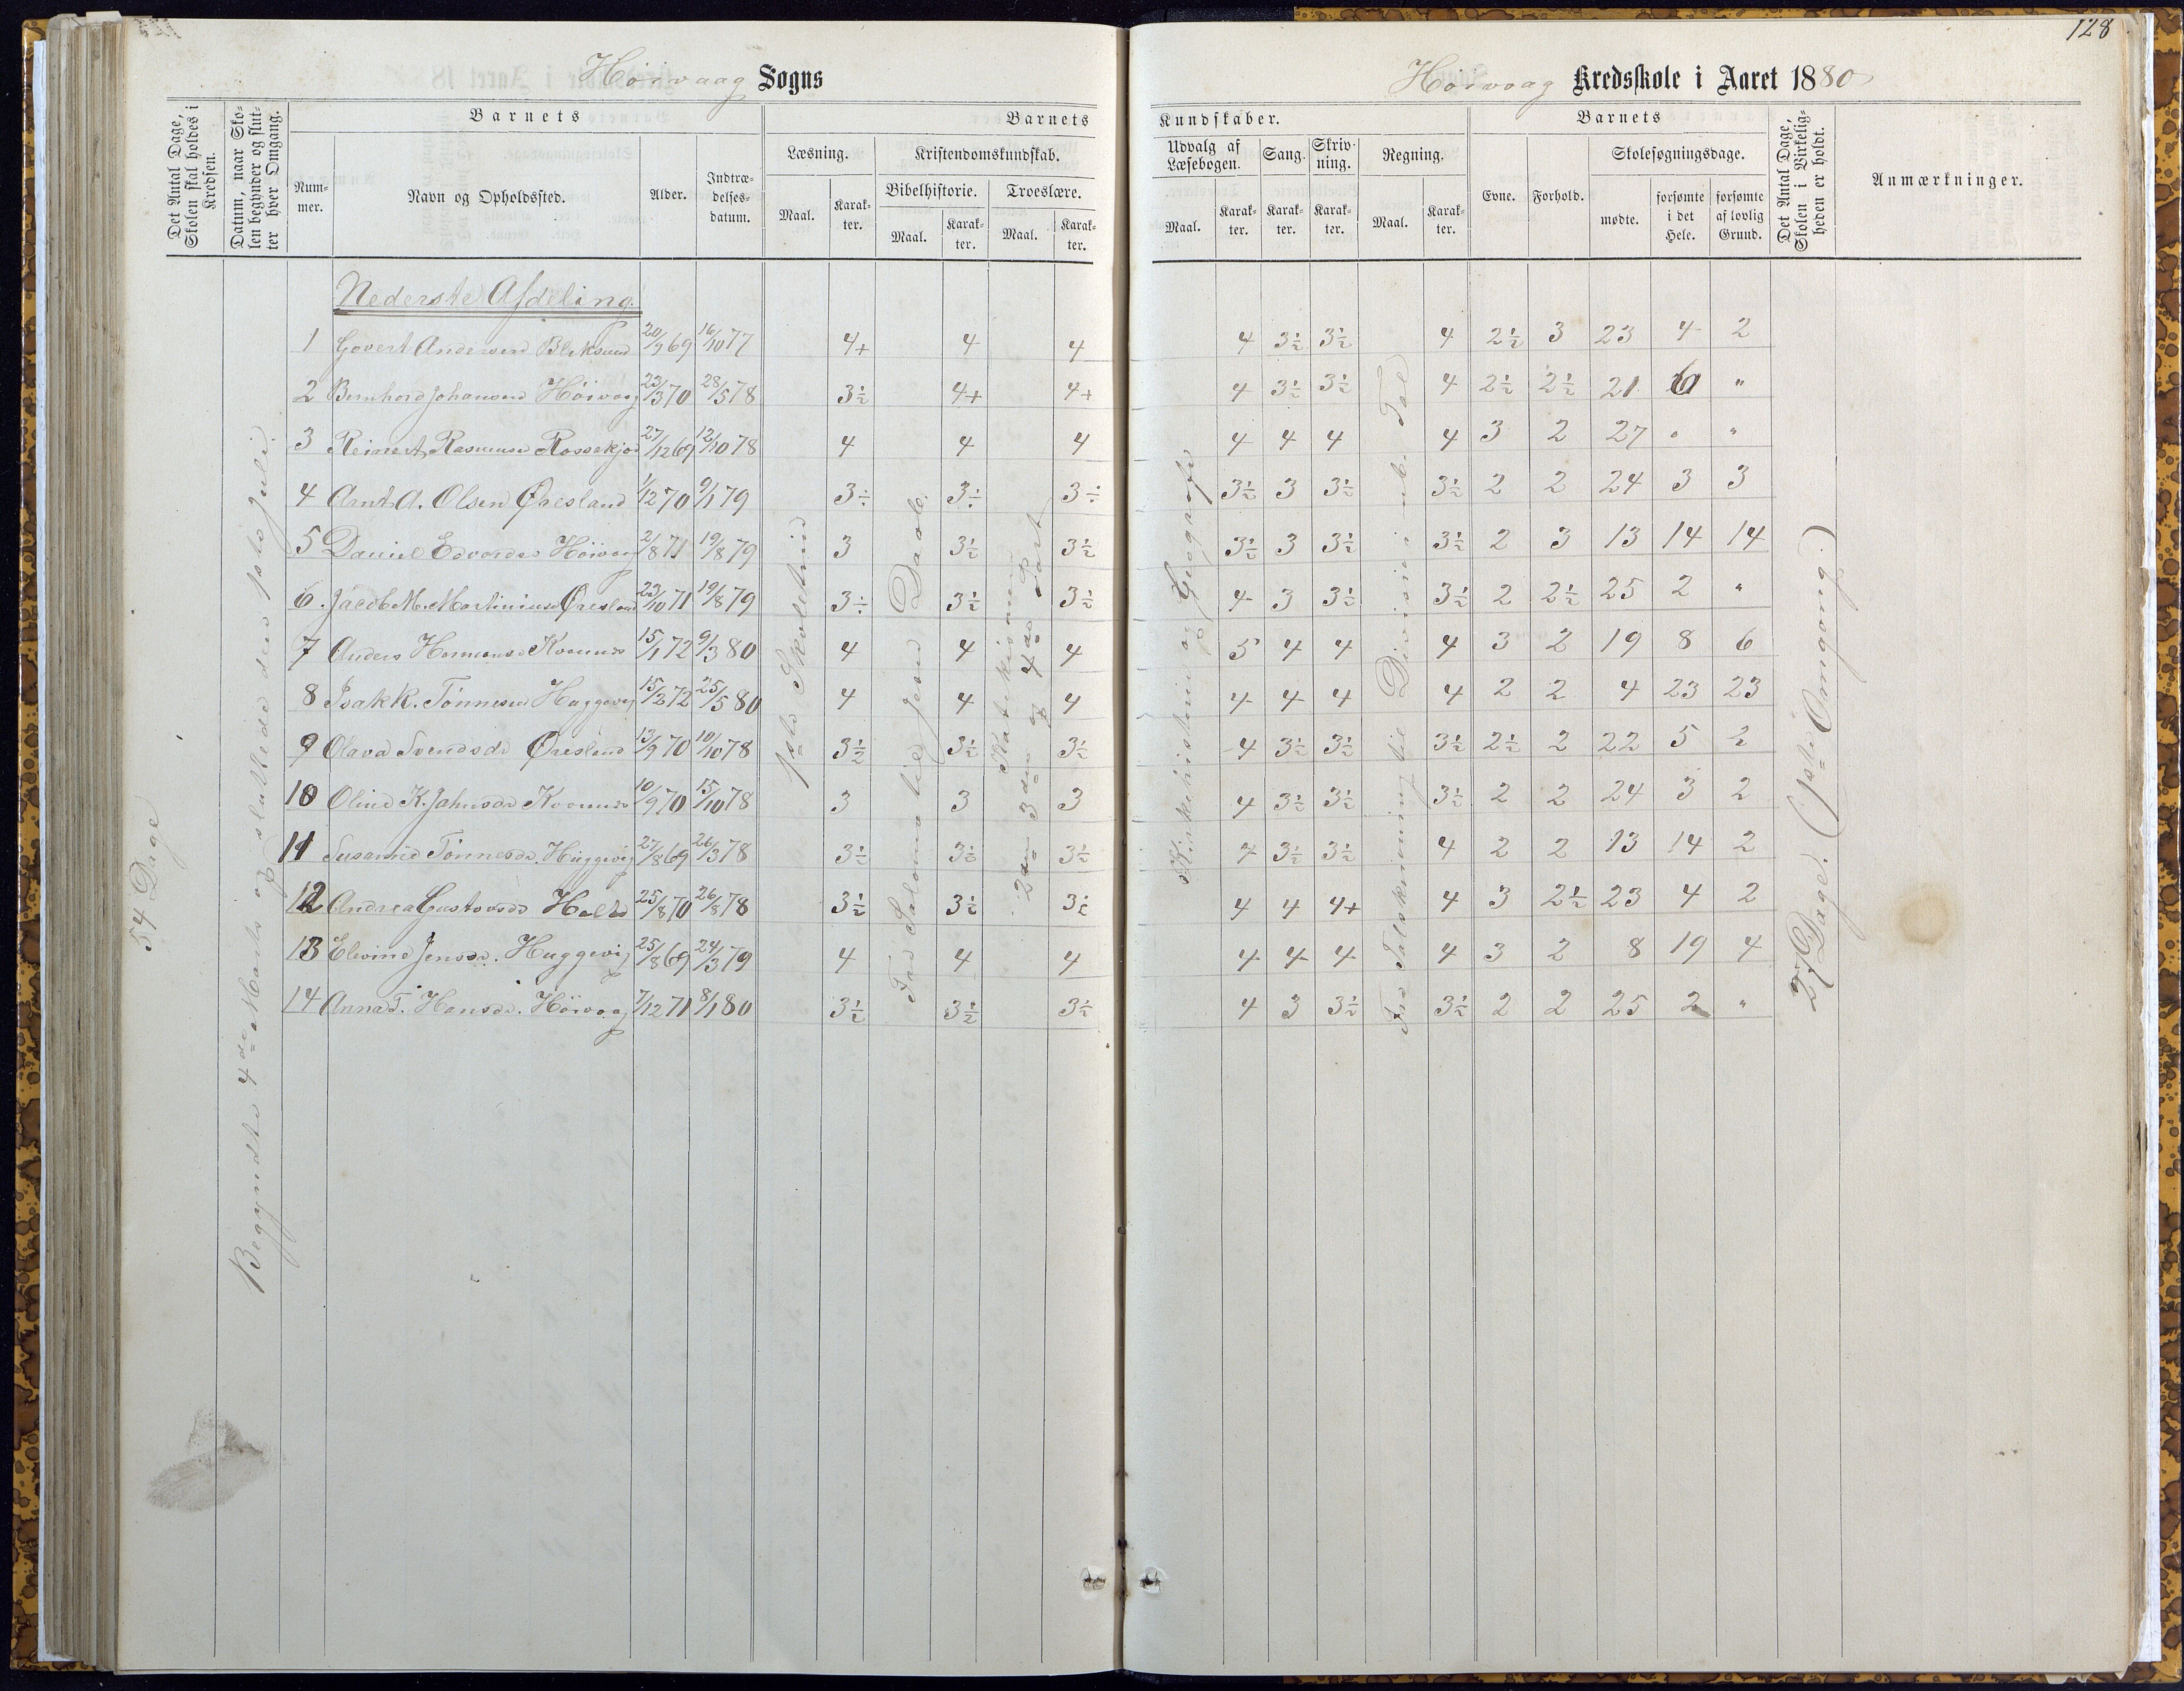 128
Høivaag Sogns
Høivaag Kredsskole i Aaret 1880
Det Antal Dage, Skolen skal holdes i Kredsen.
Datum, naar Skolen begynder og slutter hver Omgang.
Barnets
Nummer.
Navn og Opholdssted.
Alder.
Indtrædelsesdatum.
Barnets Kundskaber.
Læsning.
Maal.
Karakter.
Kristendomskundskab.
Bibelhistorie.
Maal.
Karakter.
Troeslære.
Maal.
Karakter.
Udvalg af Læsebogen.
Maal.
Karakter.
Sang.
Karakter.
Skrivning.
Karakter.
Regning.
Maal.
Karakter.
Barnets
Evne.
Forhold.
Skolesøgningsdage.
mødte.
forsømte i det Hele.
forsømte af lovlig Grund.
Det Antal Dage, Skolen i Virkeligheden er holdt.
Anmærkninger.
54 Dage
Begyndte 4de Marts og sluttede den 1ste Juli.
1ste Skoletrin
Fra Salomo til Jesu Daab.
Katekismus
2den 3die og 4de Part
Kirkehistorie og Geografi
Fra Talskrivning til Division i ub. Tal
27 Dage. (1ste Omgang.)
Nederste Afdeling.
1 Govert Andersen Bliksund 20/9 69 16/10 77 4+ 4 4 4 3½ 3½ 4 2½ 3 23 4 2
2 Bernhard Johansen Høivaag 23/3 70 28/5 78 3½ 4+ 4+ 4 3½ 3½ 4 2½ 2½ 21 6 "
3 Reinert Rasmusen Rossekjær 27/12 69 12/10 78 4 4 4 4 4 4 4 3 2 27 " "
4 Arnt A. Olsen Øresland 1/12 70 9/1 79 3÷ 3÷ 3÷ 3½ 3 3½ 3½ 2 2 24 3 3
5 Daniel Edvardsen Høivaag 2/8 71 19/8 79 3 3½ 3½ 3½ 3 3½ 3½ 2 3 13 14 14
6. Jacob M. Martiniusen Øresland 23/10 71 19/8 79 3÷ 3½ 3½ 4 3 3½ 3½ 2 2½ 25 2 "
7 Anders Hermansen 15/1 72 9/3 80 4 4 4 5 4 4 4 3 2 19 8 6
8 Isak K. Tønnesen Huggevig 15/2 72 25/5 80 4 4 4 4 4 4 4 2 2 4 23 23
9 Olava Svendsdr Øresland 13/9 70 10/10 78 3½ 3½ 3½ 4 3½ 3½ 3½ 2½ 2 22 5 2
10 Oline K. Jahnsdr 10/9 70 15/10 78 3 3 3 4 3½ 3½ 3½ 2 2 24 3 2
11 Susanne Tønnesdr. Huggevig 27/8 69 26/3 78 3½ 3½ 3½ 4 3½ 3½ 4 2 2 13 14 2
12 Andrea Gustavsdr 25/8 70 26/8 78 3½ 3½ 3½ 4 4 4+ 4 3 2½ 23 4 2
13 Elvine Jensdr. Huggevig 25/8 69 24/3 79 4 4 4 4 4 4 4 3 2 8 19 4
14 Anna T. Hansdr. Høivaag 7/12 71 8/1 80 3½ 3½ 3½ 4 3 3½ 3½ 2 2 25 2 "